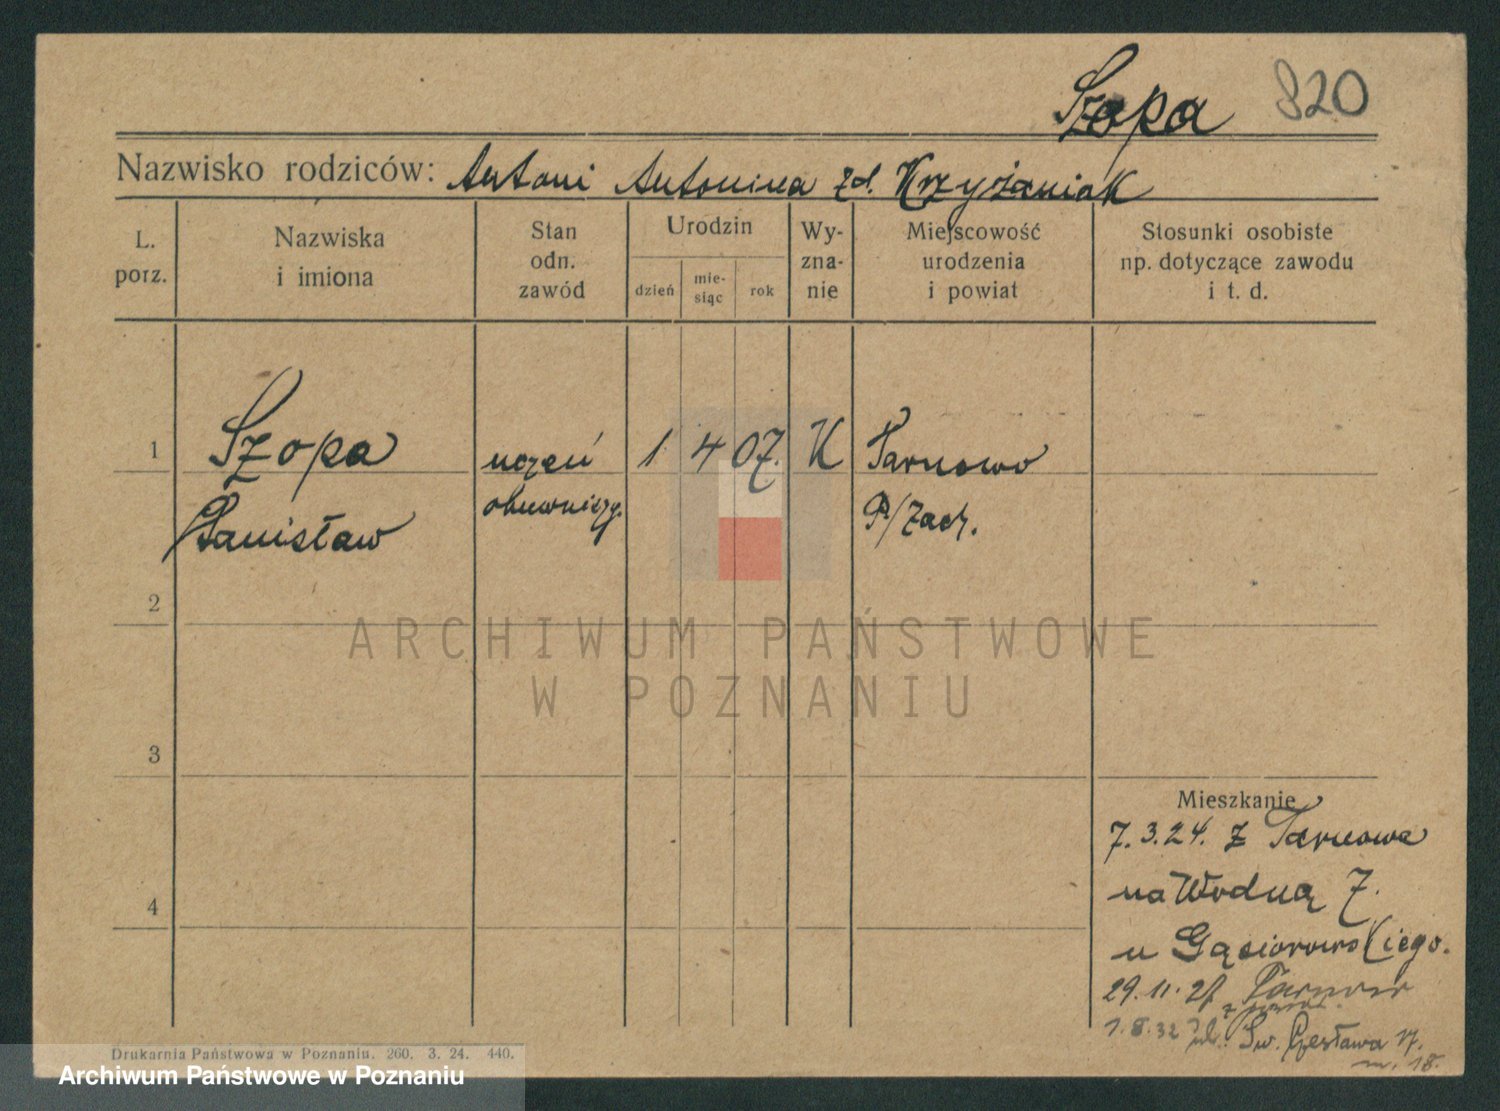 Szopa 820
Nazwisko rodziców: Antoni Antonina zd. Krzyżaniak
L. porz.
Nazwiska i imiona
Stan odn. zawód
Urodzin
dzień
mie-
siąc
rok
Wy-
zna-
nie
Miejscowość urodzenia i powiat
Stosunki osobiste np. dotyczące zawodu i t. d.
1 Szopa uczeń 1 4 07. K Tarnowo
Stanisław obuwniczy. P./Zach.
2
ARCHIWUM PAŃSTWOWE
W POZNANIU
3
Mieszkanie
7.3.24. z Tarnowa
na Wodną 7.
4
u Gąsiorowskiego.
29.11.27 Tarnowo
z powr.
1.8.32 ul. Św. Czesława 17.
m. 18.
Drukarnia Państwowa w Poznaniu. 260. 3. 24. 440.
Archiwum Państwowe w Poznaniu